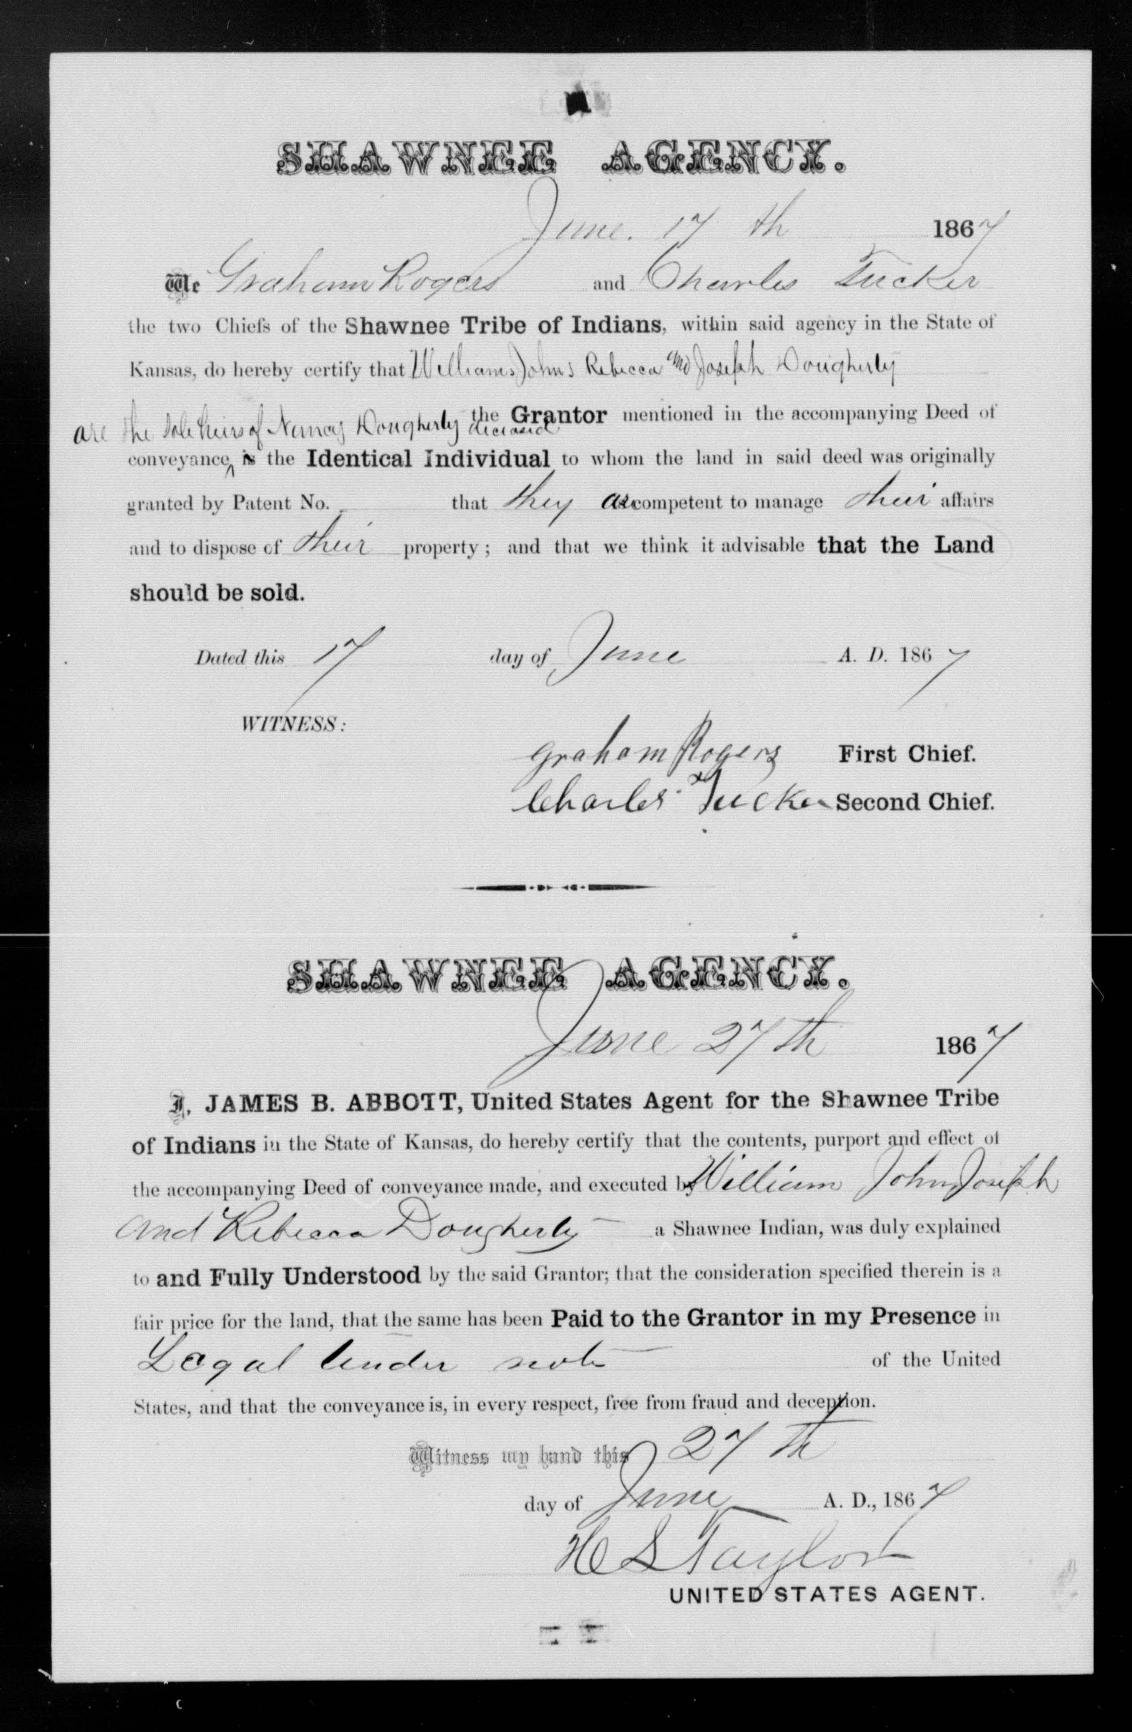 SHAWNEE AGENCY.
June. 17 th 1867
We Graham Rogers and Charles Tucker
the two Chiefs of the Shawnee Tribe of Indians, within said agency in the State of
Kansas, do hereby certify that William, John, Rebecca and Joseph Dougherty
the Grantor mentioned in the accompanying Deed of
are the sole heirs of Nancy Dougherty deceased
conveyance ^ is the Identical Individual to whom the land in said deed was originally
granted by Patent No. that they are competent to manage their affairs
and to dispose of their property; and that we think it advisable that the Land
should be sold.
Dated this 17 day of June A. D. 1867
WITNESS:
Graham Rogers First Chief.
Charles Tucker Second Chief.
SHAWNEE AGENCY.
June 27th 1867
I, JAMES B. ABBOTT, United States Agent for the Shawnee Tribe
of Indians in the State of Kansas, do hereby certify that the contents, purport and effect of
the accompanying Deed of conveyance made, and executed by William John Joseph
and Rebecca Dougherty a Shawnee Indian, was duly explained
to and Fully Understood by the said Grantor; that the consideration specified therein is a
fair price for the land, that the same has been Paid to the Grantor in my Presence in
Legal tender note of the United
States, and that the conveyance is, in every respect, free from fraud and deception.
Witness my hand this 27 th
day of June A. D., 1867
H S Taylor
UNITED STATES AGENT.